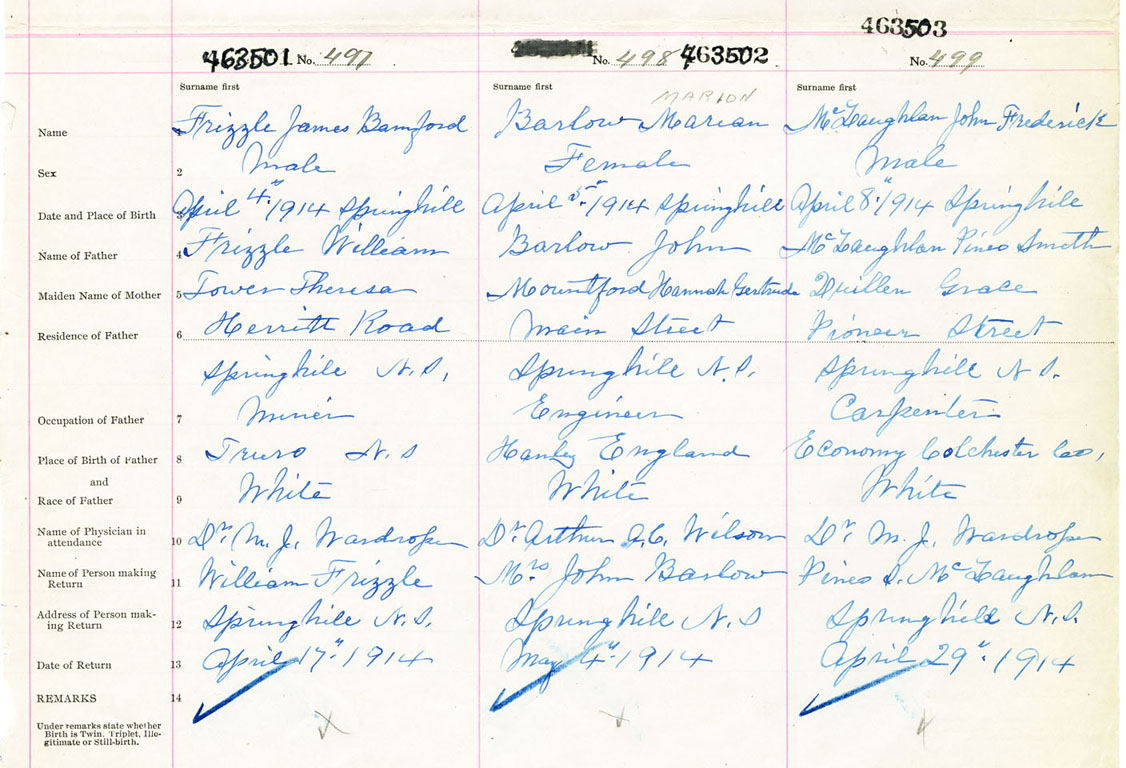 463503
463501 No. 497
No. 498 463502
No. 499
Surname first Surname first Surname first
MARION
Name 1 Frizzle James Bamford Barlow Marian McLaughlan John Frederick
Sex 2 Male Female Male
Date and Place of Birth 3 April 4" 1914 Springhill April 5" 1914 Springhill April 8" 1914 Springhill
Name of Father 4 Frizzle William Barlow John McLaughlan Pines Smith
Maiden Name of Mother 5 Tower Theresa Mountford Hannah Gertrude Grace
Residence of Father 6 Herritt Road Main Street Pioneer Street
Springhill N.S. Springhill N.S. Springhill N S.
Occupation of Father 7 Miner Engineer Carpenter
Place of Birth of Father 8 Truro N.S Hanley England Economy Colchester Coo,
and
Race of Father 9 White White White
Name of Physician in attendance 10 Dr. M. J. Wardrope Dr Arthur A.C. Wilson Dr M. J. Wardrope
Name of Person making Return 11 William Frizzle Mrs John Barlow Pines S. McLaughlan
Address of Person making Return 12 Springhill N.S. Springhill N.S Springhill N.S.
Date of Return 13 April 17" 1914 May 4" 1914 April 29" 1914
REMARKS 14
Under remarks state whether
Birth is Twin, Triplet, Ille-
gitimate or Still-birth.